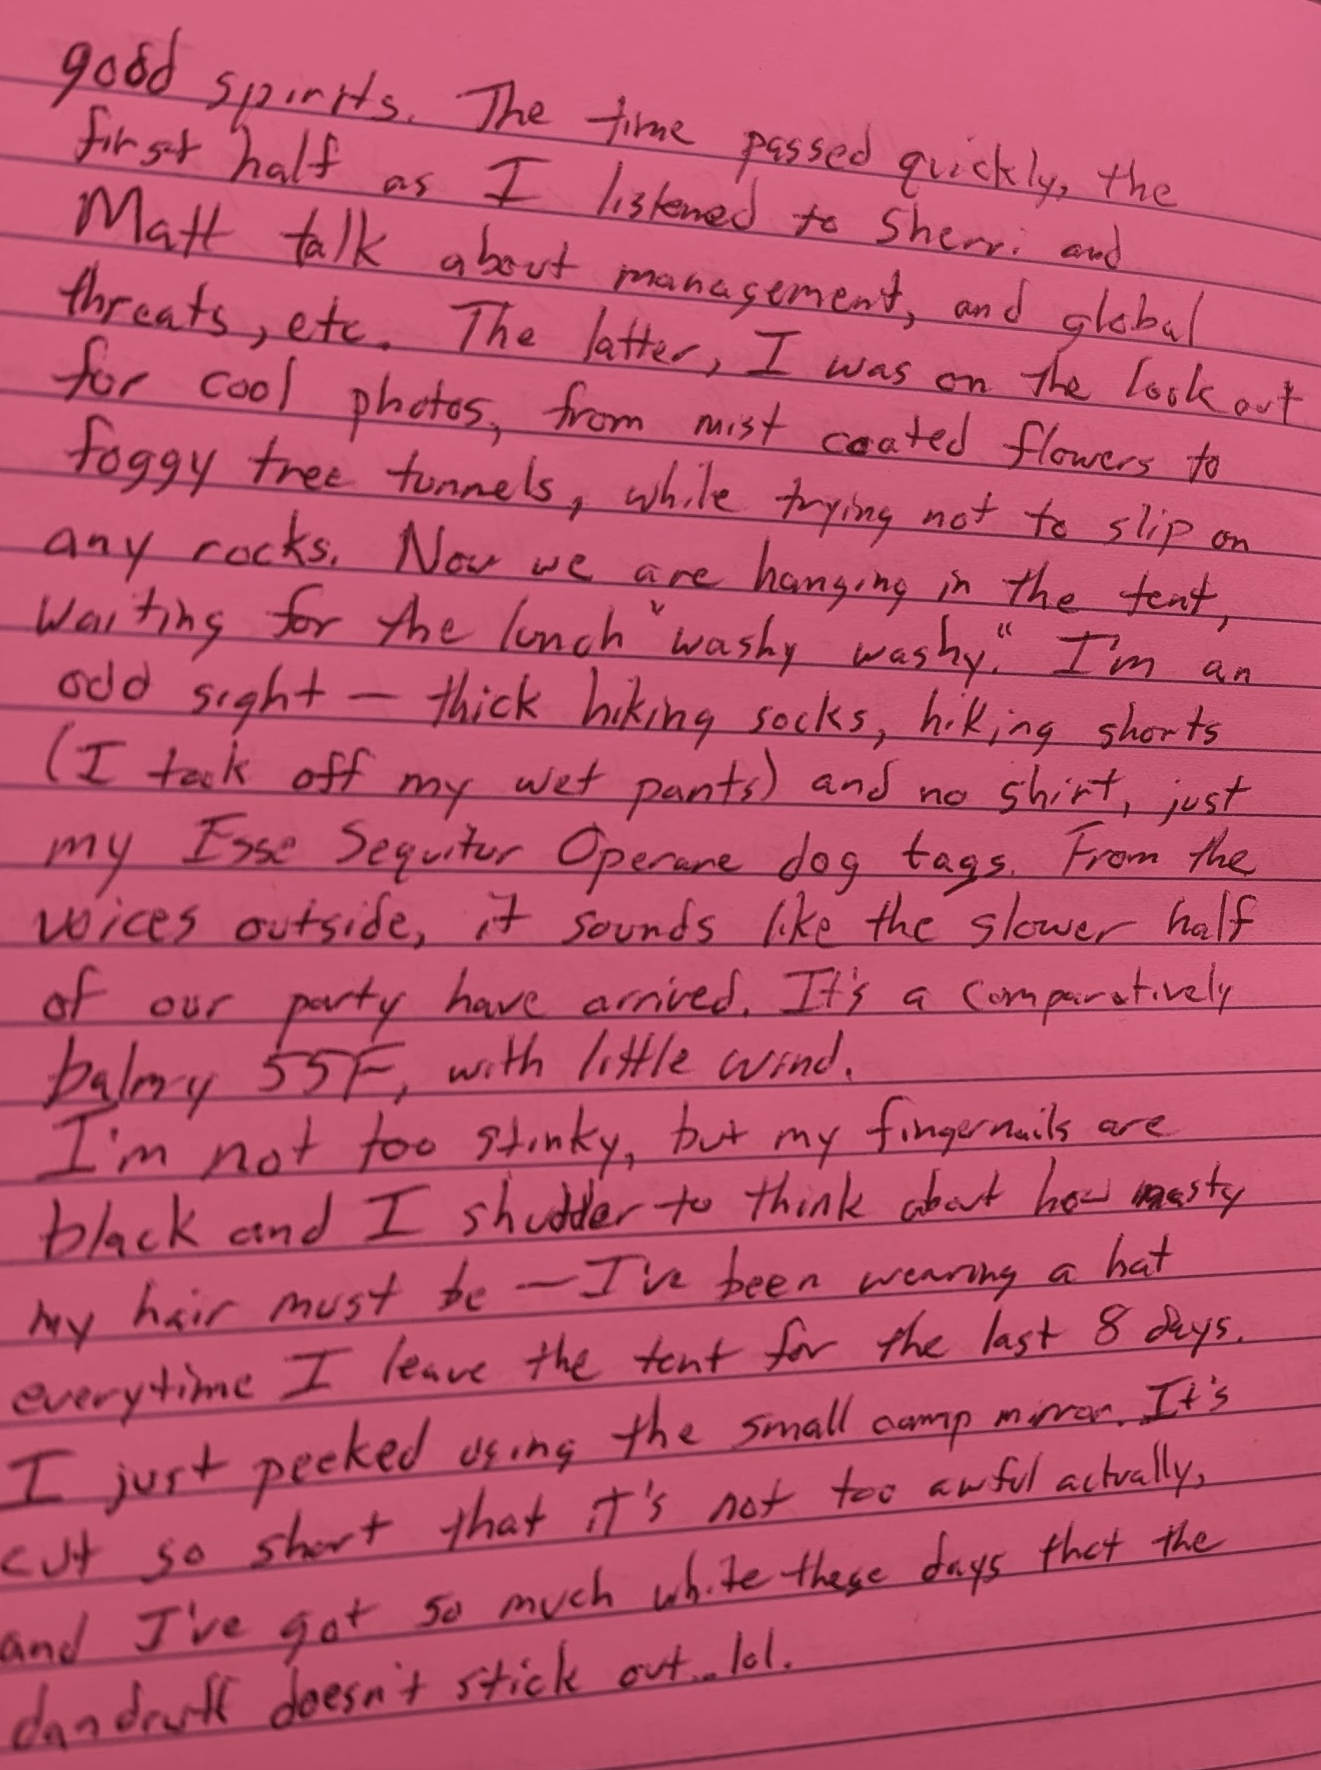 good spirits. The time passed quickly, the
first half as I listened to Sherri and
Matt talk about management, and global
threats, etc. The latter, I was on the look out
for cool photos, from mist coated flowers to
foggy tree tunnels, while trying not to slip on
any rocks. Now we are hanging in the tent,
waiting for the lunch "washy washy." I'm an
odd sight — thick hiking socks, hiking shorts
(I took off my wet pants) and no shirt, just
my Esse Sequitur Operare dog tags. From the
voices outside, it sounds like the slower half
of our party have arrived. It's a comparatively
balmy 55F, with little wind.
I'm not too stinky, but my fingernails are
black and I shudder to think about how nasty
my hair must be — I've been wearing a hat
everytime I leave the tent for the last 8 days.
I just peeked using the small camp mirror. It's
cut so short that it's not too awful actually,
and I've got so much white these days that the
dandruff doesn't stick out... lol.